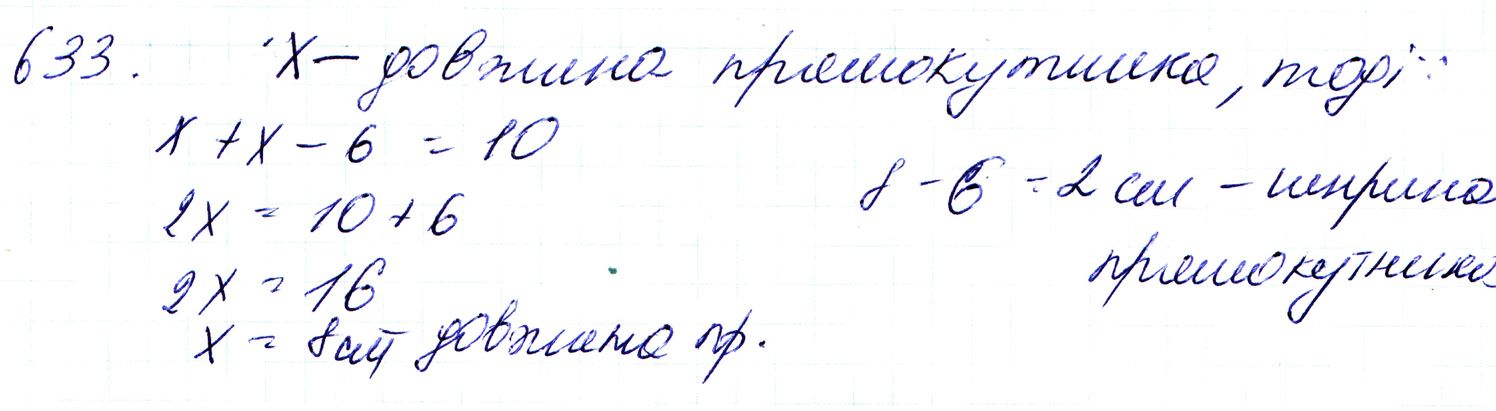 633. X – довжина прямокутника, тоді
x + x – 6 = 10
2x = 10 + 6
2x = 16
x = 8 см довжина пр.
8 – 6 = 2 см – ширина
прямокутника